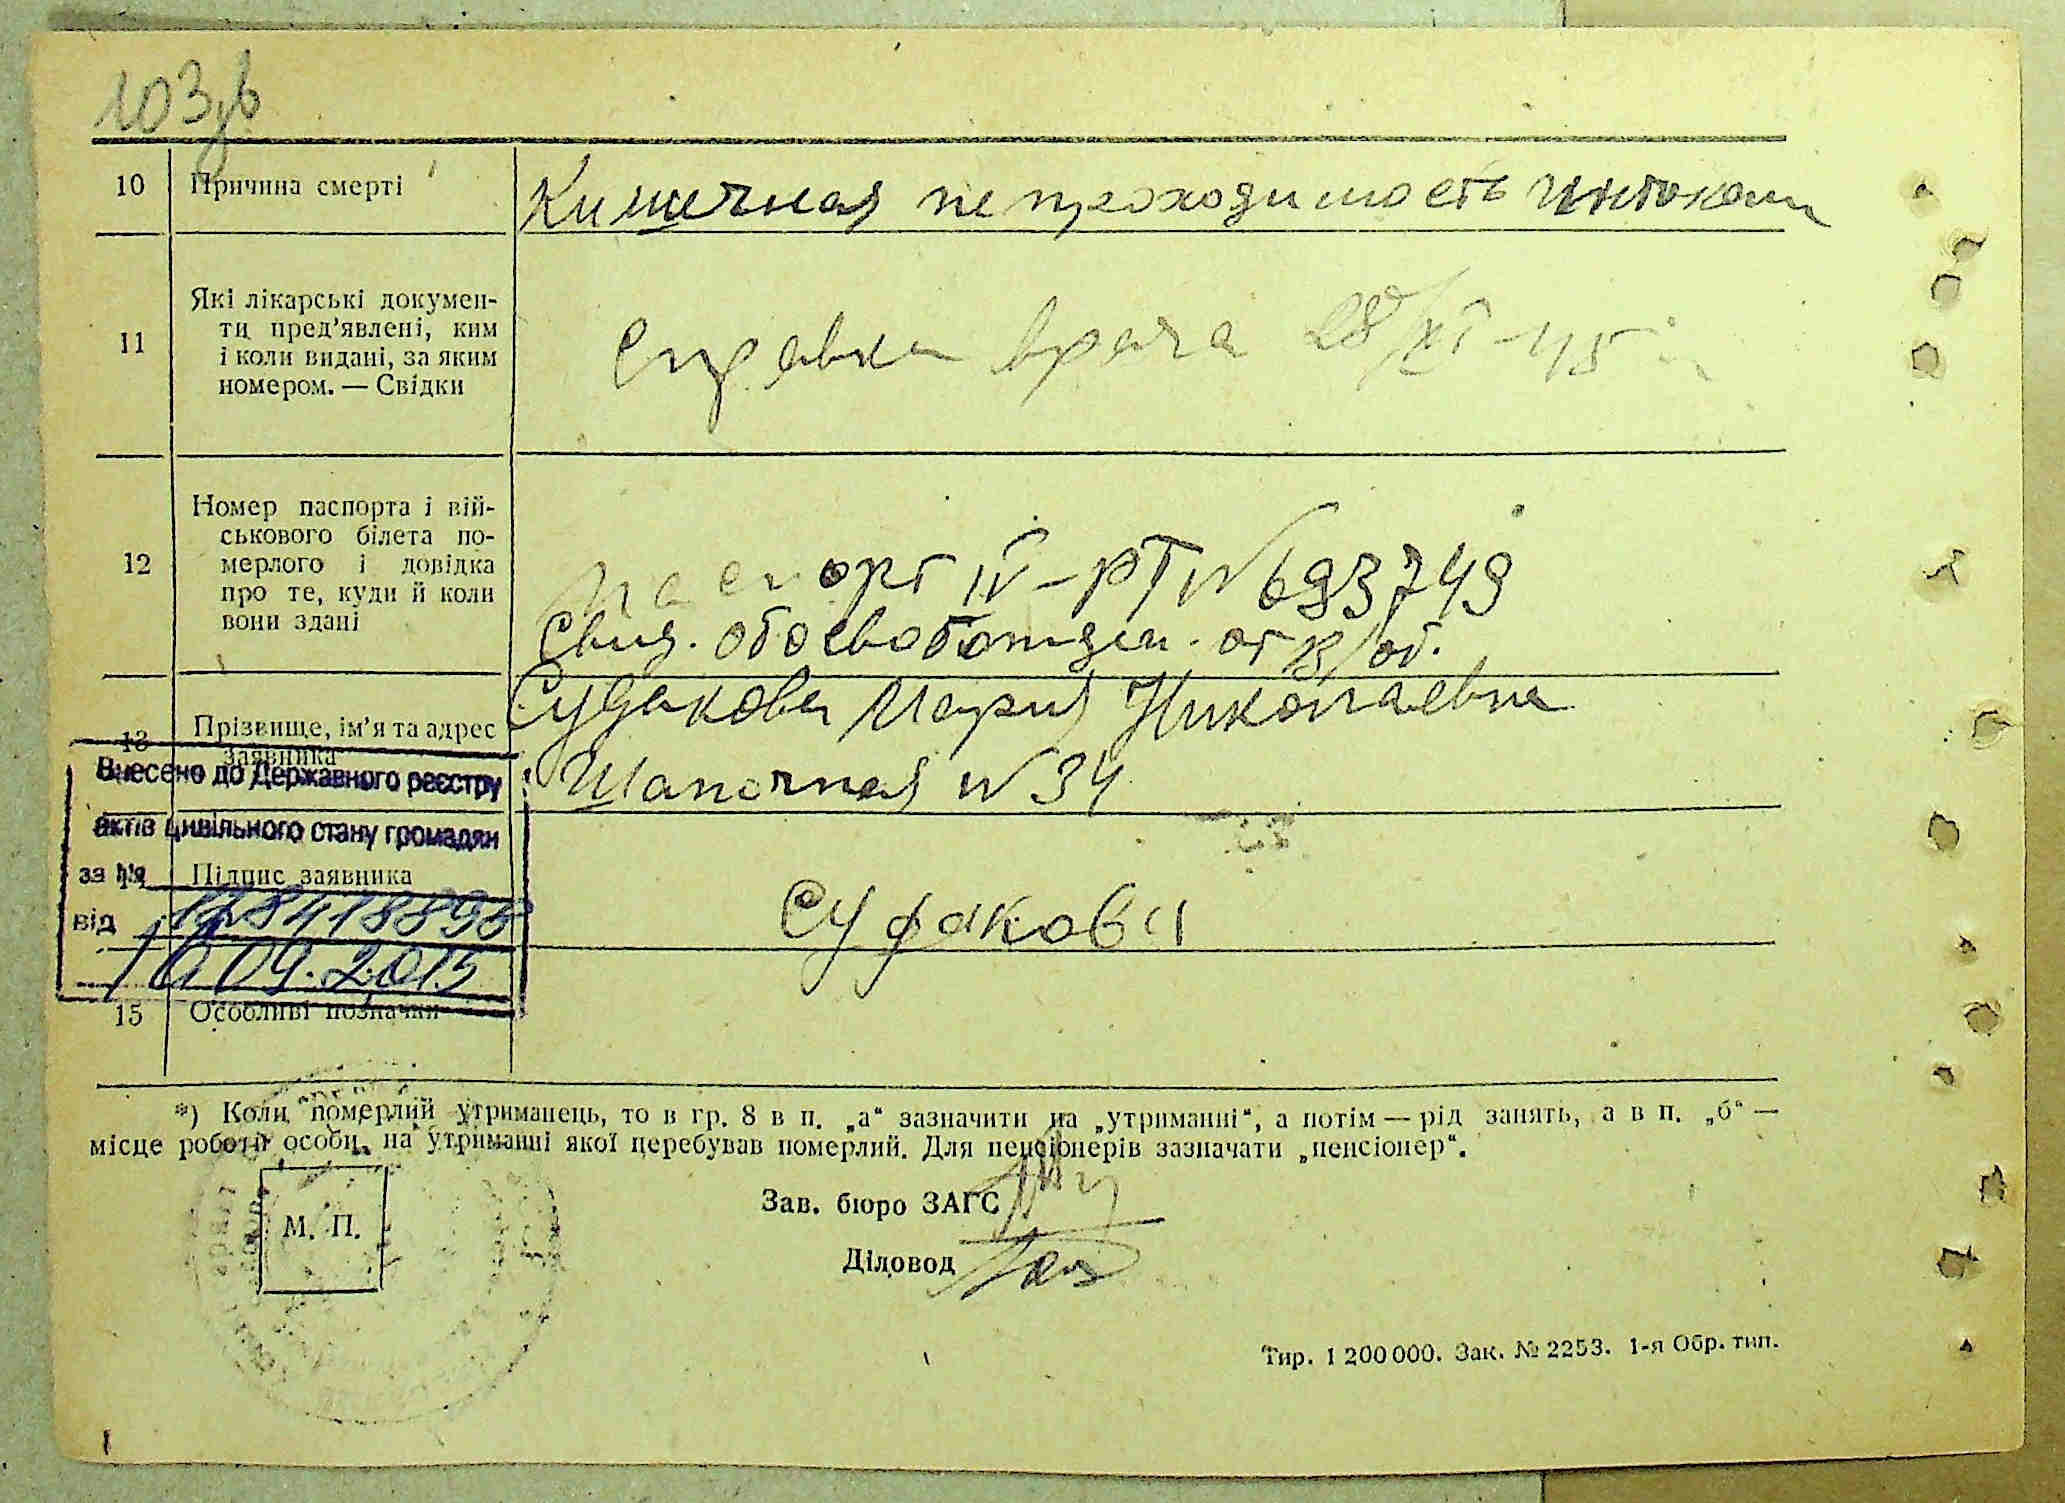 103
10 Причина смерті Кишечная непроходимость интокси
11 Які лікарські докумен-
ти пред'явлені, ким
і коли видані, за яким
номером. — Свідки
Справка врача 28/XI-45
12 Номер паспорта і вій-
ськового білета по-
мерлого і довідка
про те, куди й коли
вони здані
паспорт IV-РТ № 693749
Свид. об освобожден. от в/об.
13 Прізвище, ім'я та адрес
заявника
Судакова Мария Николаевна
Шапочная № 34
Внесено до Державного реєстру
актів цивільного стану громадян
за №
Підпис заявника Судакова
від
09.2015
15 Особливі позначки
*) Коли померлий утриманець, то в гр. 8 в п. „а“ зазначити на „утриманні“, а потім — рід занять, а в п. „б“ —
місце роботи особи, на утриманні якої перебував померлий. Для пенсіонерів зазначати „пенсіонер“.
М. П.
Зав. бюро ЗАГС
Діловод
Тир. 1 200 000. Зак. № 2253. 1-я Обр. тип.